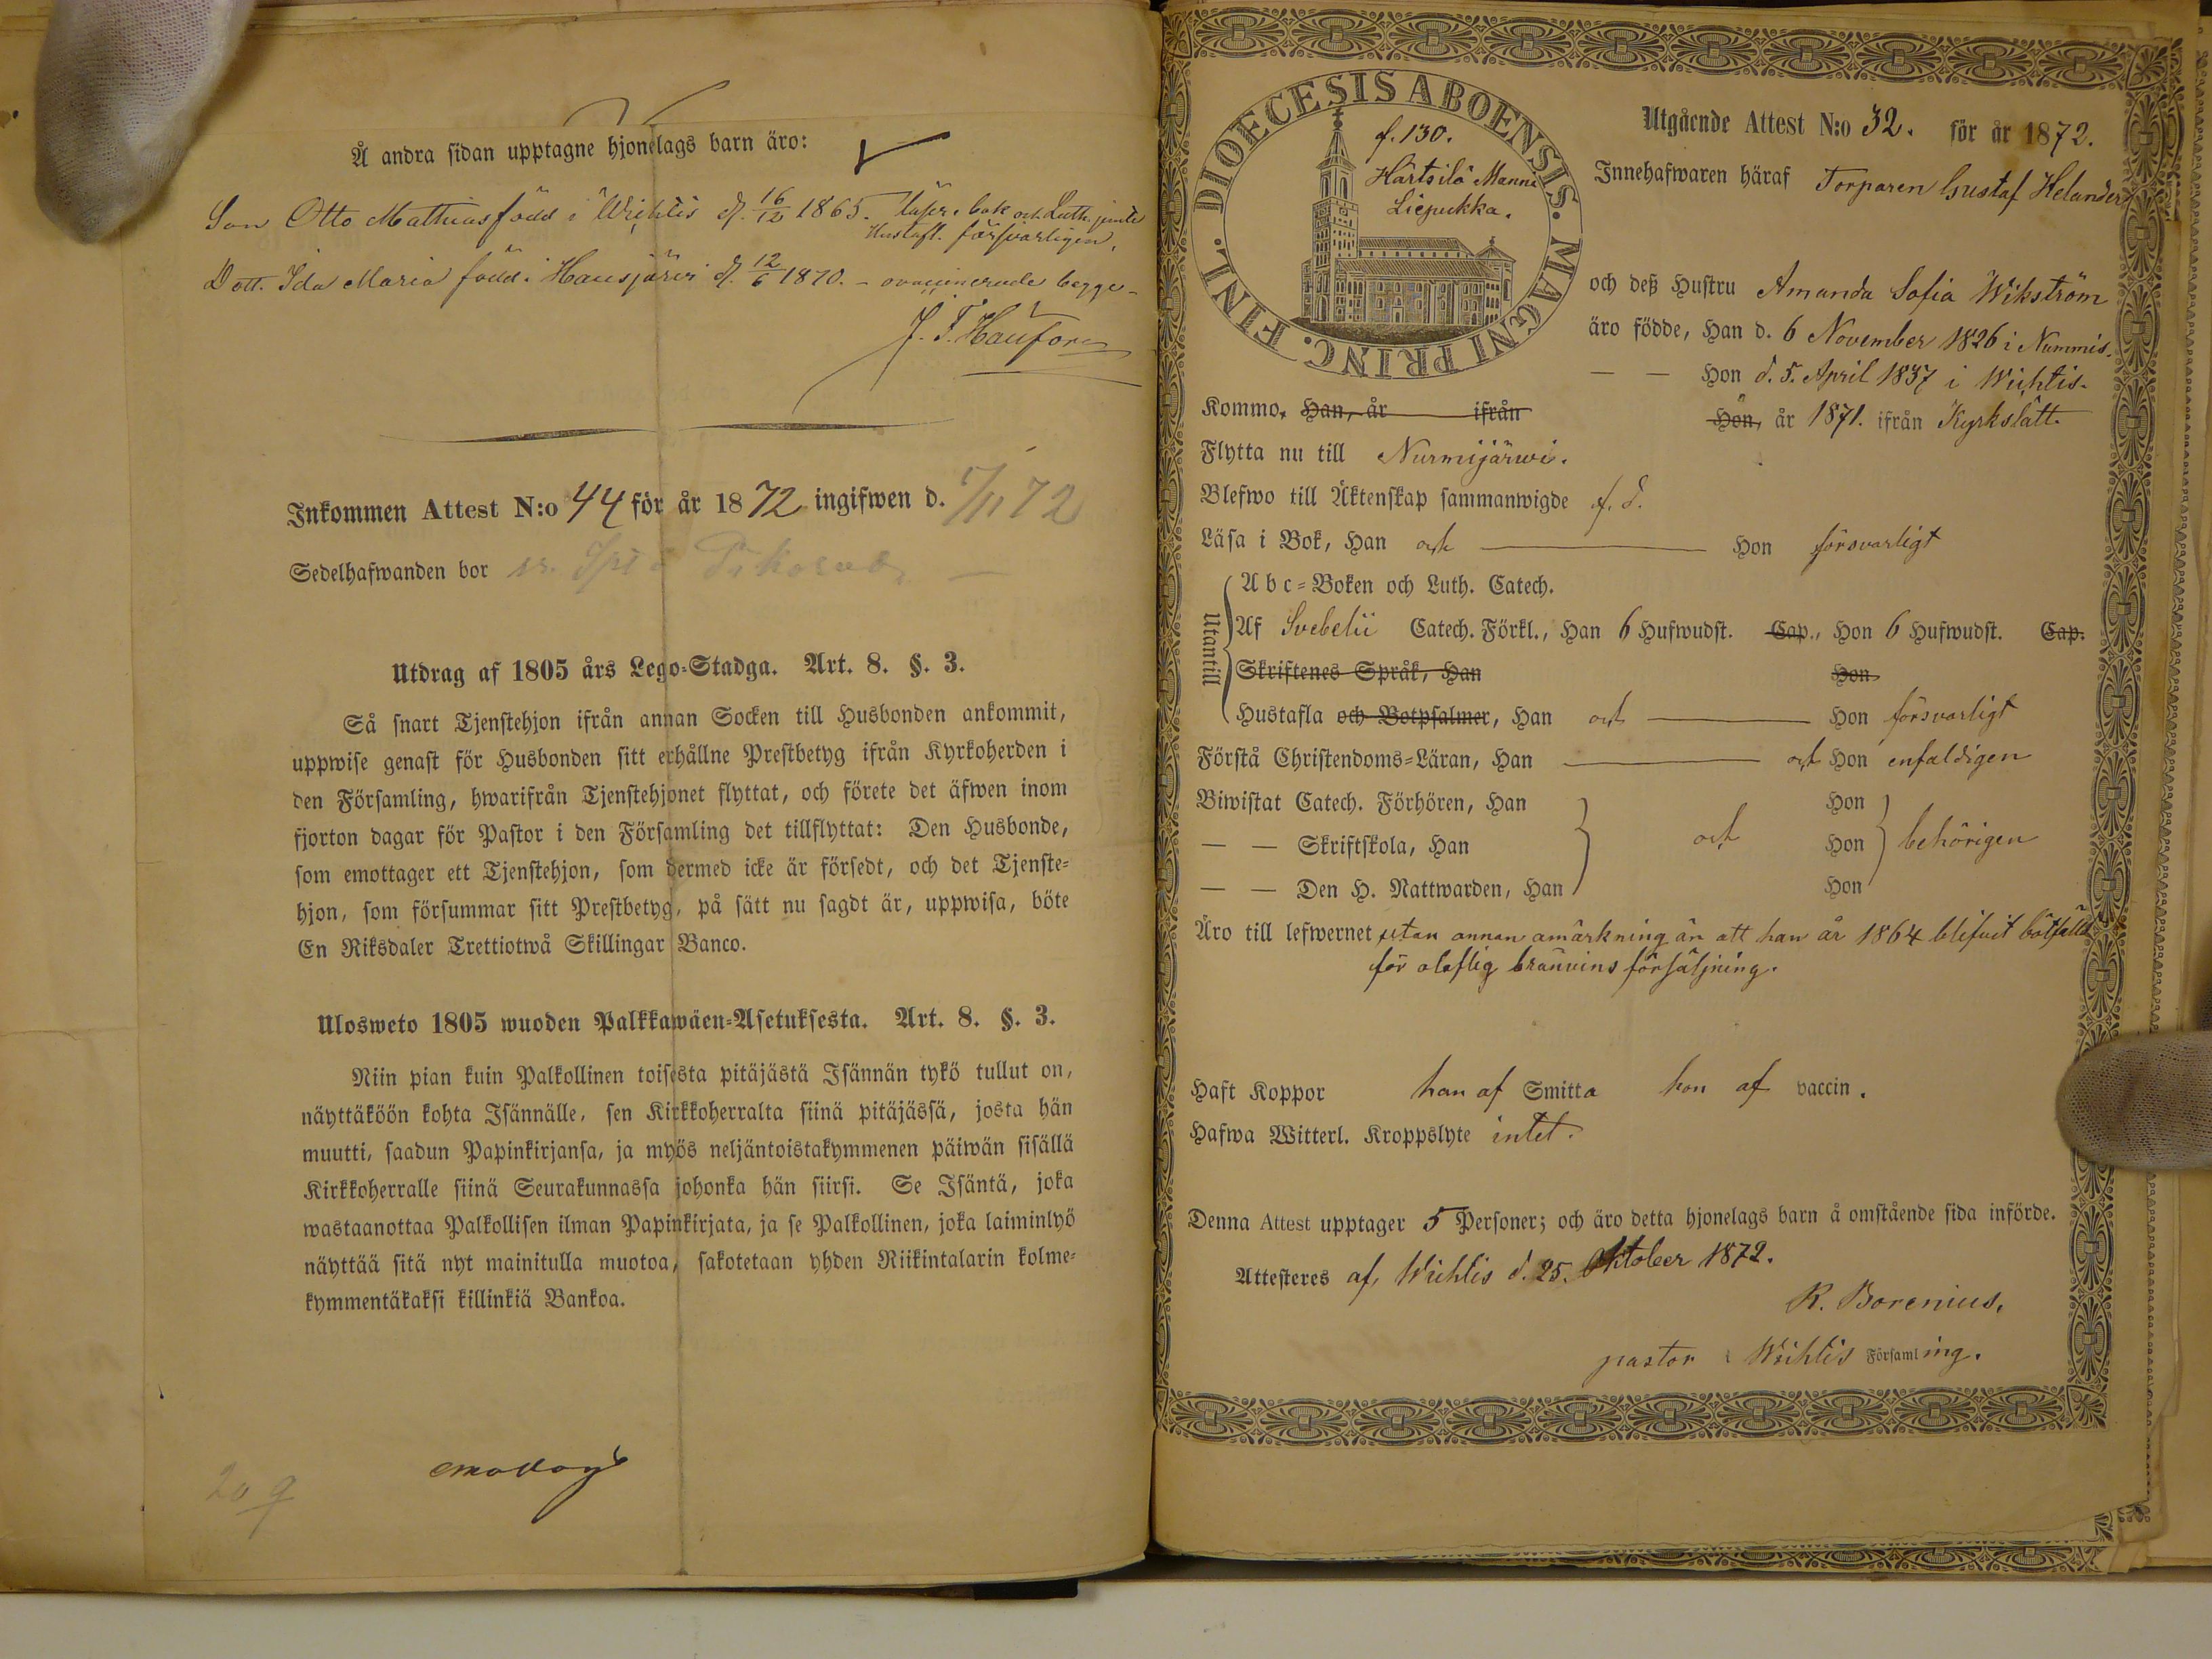 Å andra sidan upptagne hjonelags barn äro:
Son Otto Matthias född i Wichtis d. 16/12 1865. läser i bok och Luth. jemte
Hustafl. försvarligen.
Dott. Ida Maria född i Hausjärvi d. 12/6 1870. - ovaccinerade begge -
Inkommen Attest N:o 44 för år 1872 ingifwen d. 7/11 72
Sedelhafwanden bor
Utdrag af 1805 års Lego-Stadga. Art. 8. §. 3.
Så snart Tjenstehjon ifrån annan Socken till Husbonden ankommit,
uppwise genast för Husbonden sitt erhållne Prestbetyg ifrån Kyrkoherden i
den Församling, hwarifrån Tjenstehjonet flyttat, och förete det äfwen inom
fjorton dagar för Pastor i den Församling det tillflyttat: Den Husbonde,
som emottager ett Tjenstehjon, som dermed icke är försedt, och det Tjenste-
hjon, som försummar sitt Prestbetyg, på sätt nu sagdt är, uppwisa, böte
En Riksdaler Trettiotwå Skillingar Banco.
Ulosweto 1805 wuoden Palkkawäen-Asetuksesta. Art. 8. §. 3.
Niin pian kuin Palkollinen toisesta pitäjästä Isännän tykö tullut on,
näyttäköön kohta Isännälle, sen Kirkkoherralta siinä pitäjässä, josta hän
muutti, saadun Papinkirjansa, ja myös neljäntoistakymmenen päiwän sisällä
Kirkkoherralle siinä Seurakunnassa johonka hän siirsi. Se Isäntä, joka
wastaanottaa Palkollisen ilman Papinkirjata, ja se Palkollinen, joka laiminlyö
näyttää sitä nyt mainitulla muotoa, sakotetaan yhden Riikintalarin kolme-
kymmentäkaksi killinkiä Bankoa.
20 9
DIOECESIS ABOENSIS. MAGNI PRINC. FINL.
f. 130.
Härtsilä Manni
Liepukka.
Utgående Attest N:o 32. för år 1872.
Innehafwaren häraf Torparen Gustaf Helander
och deß Hustru Amanda Sofia Wikström
äro födde, Han d. 6 November 1826 i Nummis.
— — Hon d. 5. April 1837 i Wichtis.
Kommo, Han, år ifrån Hon, år 1871. ifrån Kyrkslätt.
Flytta nu till Nurmijärwi.
Blefwo till Äktenskap sammanwigde f. d.
Läsa i Bok, Han och Hon försvarligt
Utantill
Abc-Boken och Luth. Catech.
Af Svebelii Catech. Förkl., Han 6 Hufwudst. Cap., Hon 6 Hufwudst. Cap.
Skriftenes Språk, Han Hon
Hustafla och Botpsalmer, Han och Hon försvarligt
Förstå Christendoms-Läran, Han och Hon enfaldigen
Biwistat Catech. Förhören, Han Hon
— — Skriftskola, Han och Hon behörigen
— — Den H. Nattwarden, Han Hon
Äro till lefwernet utan annan anmärkning än att han år 1864 blifvit bötfälld
för olaflig bränvins försäljning.
Haft Koppor han af Smitta hon af vaccin.
Hafwa Witterl. Kroppslyte intet.
Denna Attest upptager 5 Personer; och äro detta hjonelags barn å omstående sida införde.
Attesteres af, Wichtis d. 25. Oktober 1872.
R. Borenius,
pastor i Wichtis Församling.